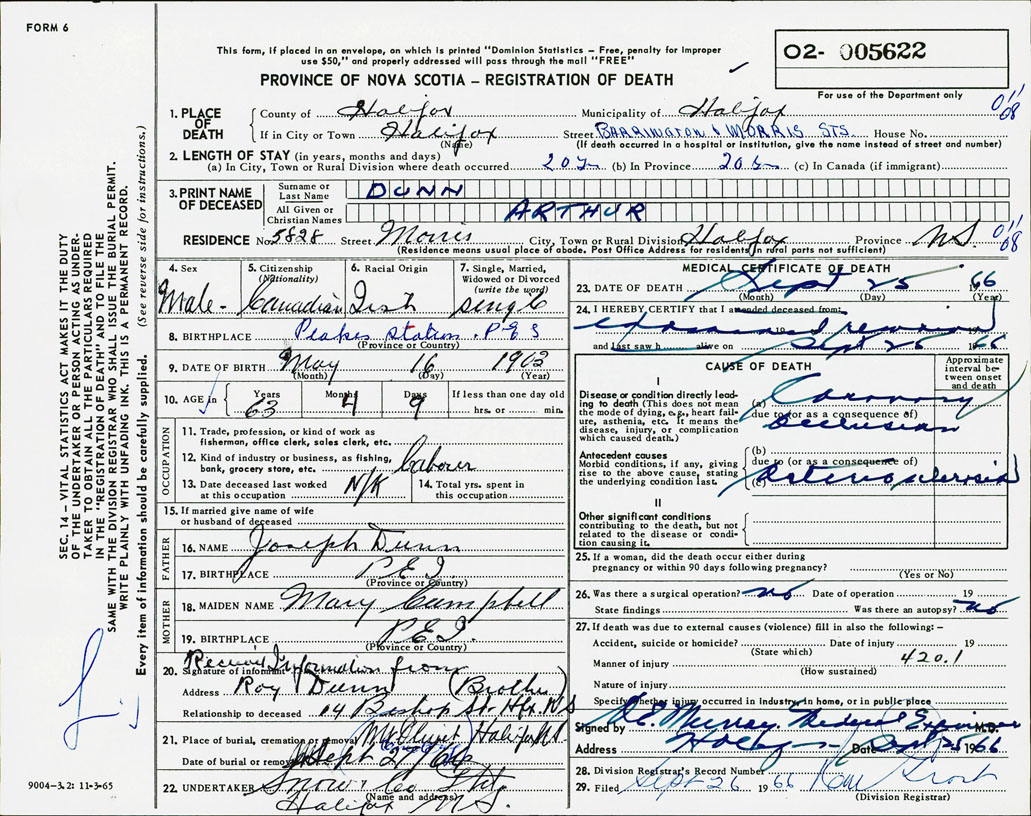 FORM 6
This form, if placed in an envelope, on which is printed "Dominion Statistics – Free, penalty for improper
use $50," and properly addressed will pass through the mail "FREE"
PROVINCE OF NOVA SCOTIA – REGISTRATION OF DEATH
O2- 005622
For use of the Department only
1. PLACE OF DEATH
County of Halifax Municipality of Halifax
If in City or Town Halifax Street BARRINGTON & MORRIS STS. House No.
(Name) (If death occurred in a hospital or institution, give the name instead of street and number)
2. LENGTH OF STAY (in years, months and days)
(a) In City, Town or Rural Division where death occurred 20 y (b) In Province 20 y (c) In Canada (if immigrant)
3. PRINT NAME OF DECEASED
Surname or Last Name DUNN
All Given or Christian Names ARTHUR
RESIDENCE No. 5828 Street Morris City, Town or Rural Division Halifax Province N.S.
(Residence means usual place of abode. Post Office Address for residents in rural parts not sufficient)
4. Sex Male
5. Citizenship (Nationality) Canadian
6. Racial Origin
7. Single, Married, Widowed or Divorced (write the word) single
8. BIRTHPLACE Peakes Station. P.E.I
(Province or Country)
9. DATE OF BIRTH May 16 1903
(Month) (Day) (Year)
10. AGE in Years 63 Months 4 Days 9 If less than one day old
hrs. or min.
OCCUPATION
11. Trade, profession, or kind of work as
fisherman, office clerk, sales clerk, etc.
12. Kind of industry or business, as fishing,
bank, grocery store, etc. Labourer
13. Date deceased last worked
at this occupation N/K
14. Total yrs. spent in
this occupation
15. If married give name of wife
or husband of deceased
FATHER
16. NAME Joseph Dunn
17. BIRTHPLACE P.E.I
(Province or Country)
MOTHER
18. MAIDEN NAME Mary Campbell
19. BIRTHPLACE P.E.I.
(Province or Country)
Received Information from
20. Signature of informant
Address Roy Dunn (Brother)
Relationship to deceased 14 Bishop St. Hfx. N.S
21. Place of burial, cremation or removal Mt Olivet Halifax N.S.
Date of burial or removal Sept 27/66
22. UNDERTAKER Snow & Co Ltd
(Name and address)
Halifax N.S.
MEDICAL CERTIFICATE OF DEATH
23. DATE OF DEATH Sept 25 66
(Month) (Day) (Year)
24. I HEREBY CERTIFY that I attended deceased from:
19
and last saw h alive on Sept 25 1966
CAUSE OF DEATH
Approximate interval between onset and death
I
Disease or condition directly leading to death (This does not mean the mode of dying, e.g., heart failure, asthenia, etc. It means the disease, injury, or complication which caused death.)
(a) Coronary
due to (or as a consequence of)
Occlusion
Antecedent causes
Morbid conditions, if any, giving rise to the above cause, stating the underlying condition last.
(b)
due to (or as a consequence of)
(c) Arteriosclerosis
II
Other significant conditions
contributing to the death, but not related to the disease or condition causing it.
25. If a woman, did the death occur either during
pregnancy or within 90 days following pregnancy?
(Yes or No)
26. Was there a surgical operation? No Date of operation 19
State findings Was there an autopsy? No
27. If death was due to external causes (violence) fill in also the following: –
Accident, suicide or homicide? Date of injury 19
(State which)
Manner of injury 420.1
(How sustained)
Nature of injury
Specify whether injury occurred in Industry, in home, or in public place
Signed by Murray, Medical Examiner M.D.
Address Date Sept 25 1966
28. Division Registrar's Record Number
29. Filed Sept 26 1966
(Division Registrar)
SEC. 14 – VITAL STATISTICS ACT MAKES IT THE DUTY
OF THE UNDERTAKER OR PERSON ACTING AS UNDER-
TAKER TO OBTAIN ALL THE PARTICULARS REQUIRED
IN THE "REGISTRATION OF DEATH" AND TO FILE THE
SAME WITH THE DIVISION REGISTRAR WHO SHALL ISSUE THE BURIAL PERMIT.
WRITE PLAINLY WITH UNFADING INK. THIS IS A PERMANENT RECORD.
Every item of information should be carefully supplied. (See reverse side for instructions.)
9004–3.2: 11-3-65